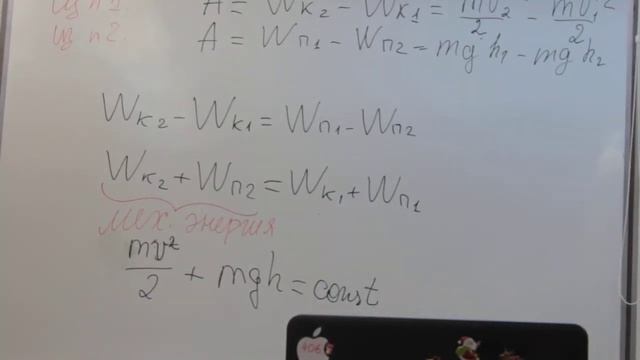 Из п1. A = Wк2 - Wк1 = mv2²/2 - mv1²/2
Из п2. A = Wп1 - Wп2 = mgh1 - mgh2
Wк2 - Wк1 = Wп1 - Wп2
Wк2 + Wп2 = Wк1 + Wп1
мех. энергия
mv²/2 + mgh = const